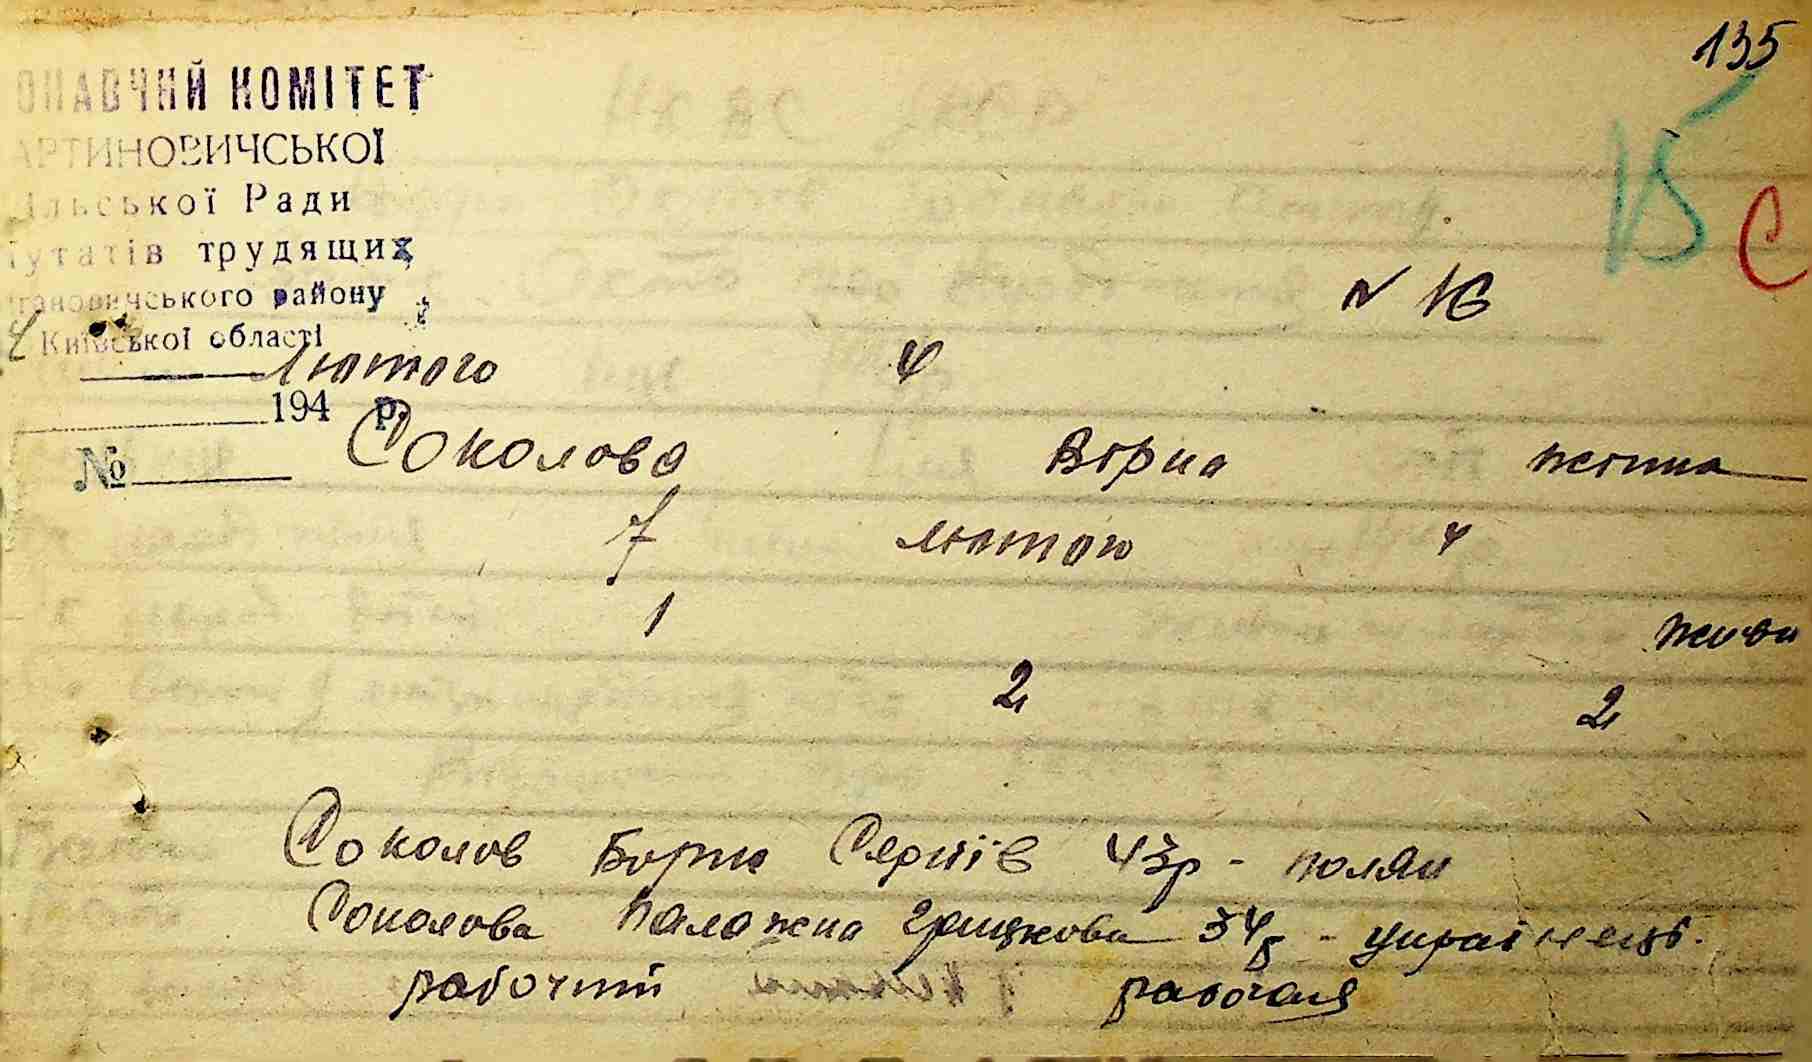 135
15 С
ОНАВЧИЙ КОМІТЕТ
АРТИНОВИЧСЬКОЇ
ільської Ради
путатів трудящих
гановичського району
Київської області
№ 16
4 лютого 4
194 р.
№ Соколова Вірна жетна
7 лютого 4
1 живи
2 2
Соколов Борис Сергіїв 43р - поляк
Соколова Палажка Грицкова 34р - українець.
рабочий рабочая